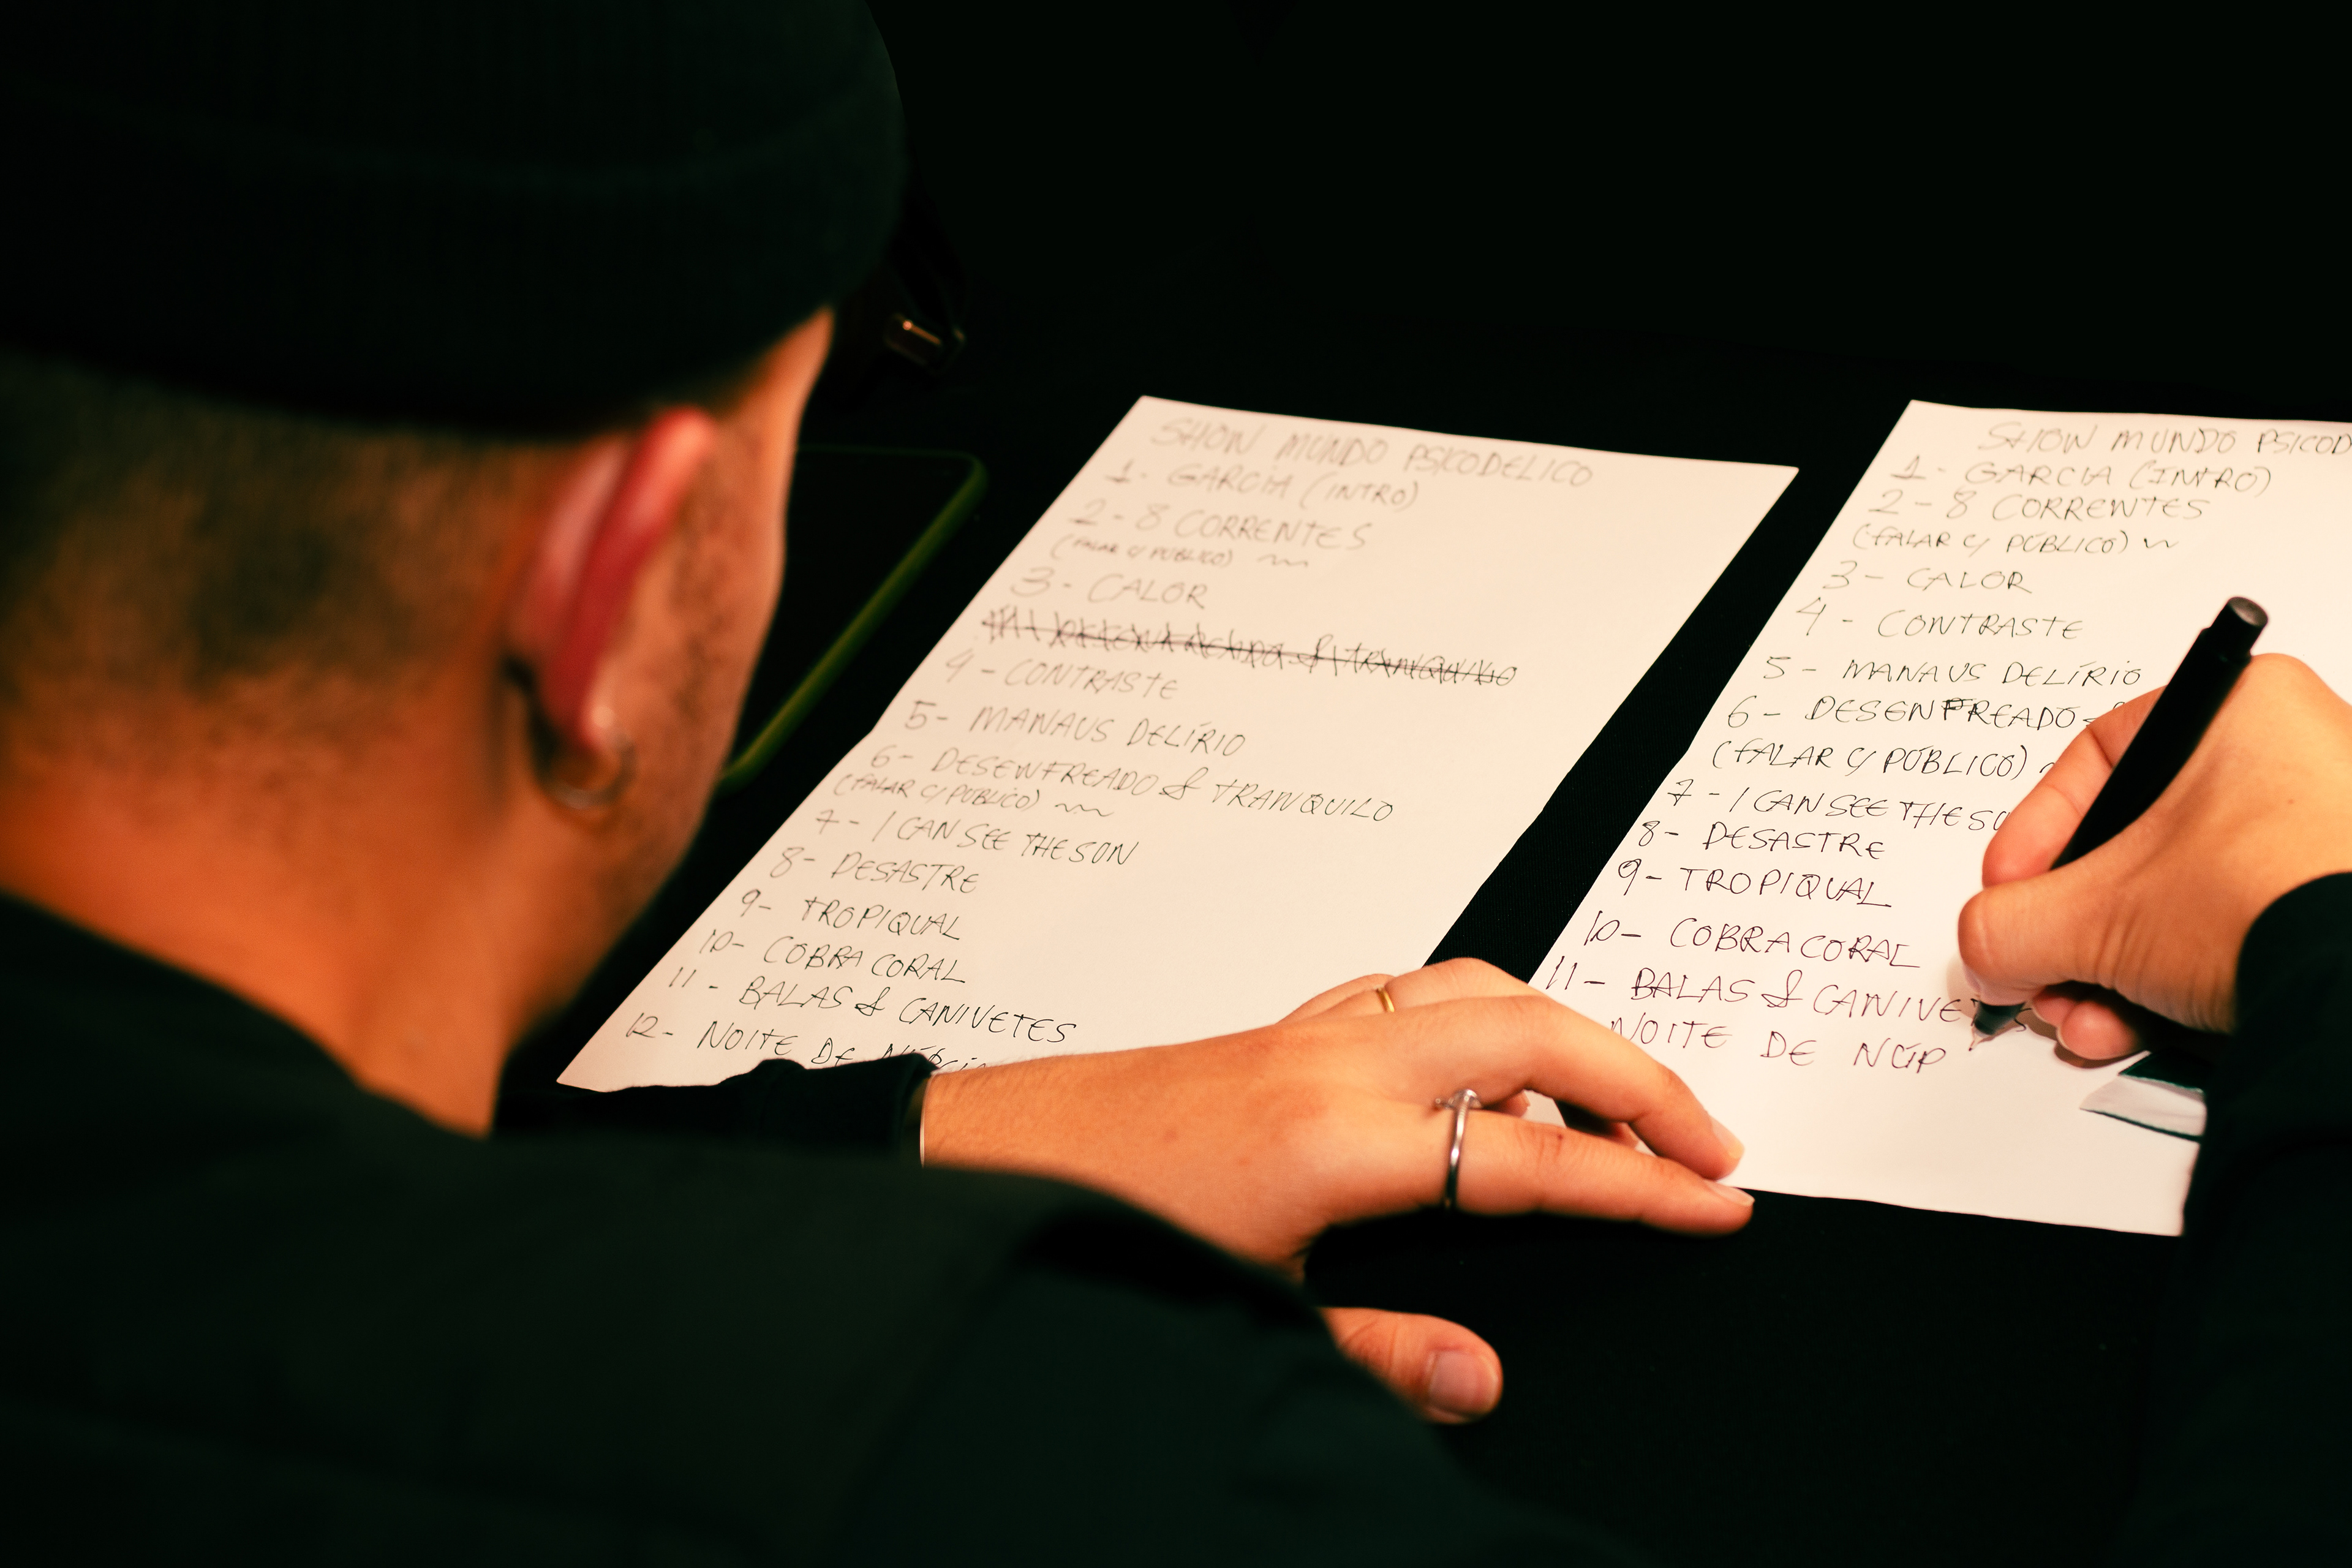 SHOW MUNDO PSICODELICO
1- GARCIA (INTRO)
2- 8 CORRENTES
(FALAR C/ PÚBLICO)
3- CALOR
4- CONTRASTE
5- MANAUS DELÍRIO
6- DESENFREADO & TRANQUILO
(FALAR C/ PÚBLICO)
7- I CAN SEE THE SON
8- DESASTRE
9- TROPIQUAL
10- COBRA CORAL
11- BALAS & CANIVETES
12- NOITE DE
SHOW MUNDO PSICOD
1- GARCIA (INTRO)
2- 8 CORRENTES
(FALAR C/ PÚBLICO)
3- CALOR
4- CONTRASTE
5- MANAUS DELÍRIO
6- DESENFREADO
(FALAR C/ PÚBLICO)
7- I CAN SEE THE SO
8- DESASTRE
9- TROPIQUAL
10- COBRA CORAL
11- BALAS & CANIVE
NOITE DE NÚP